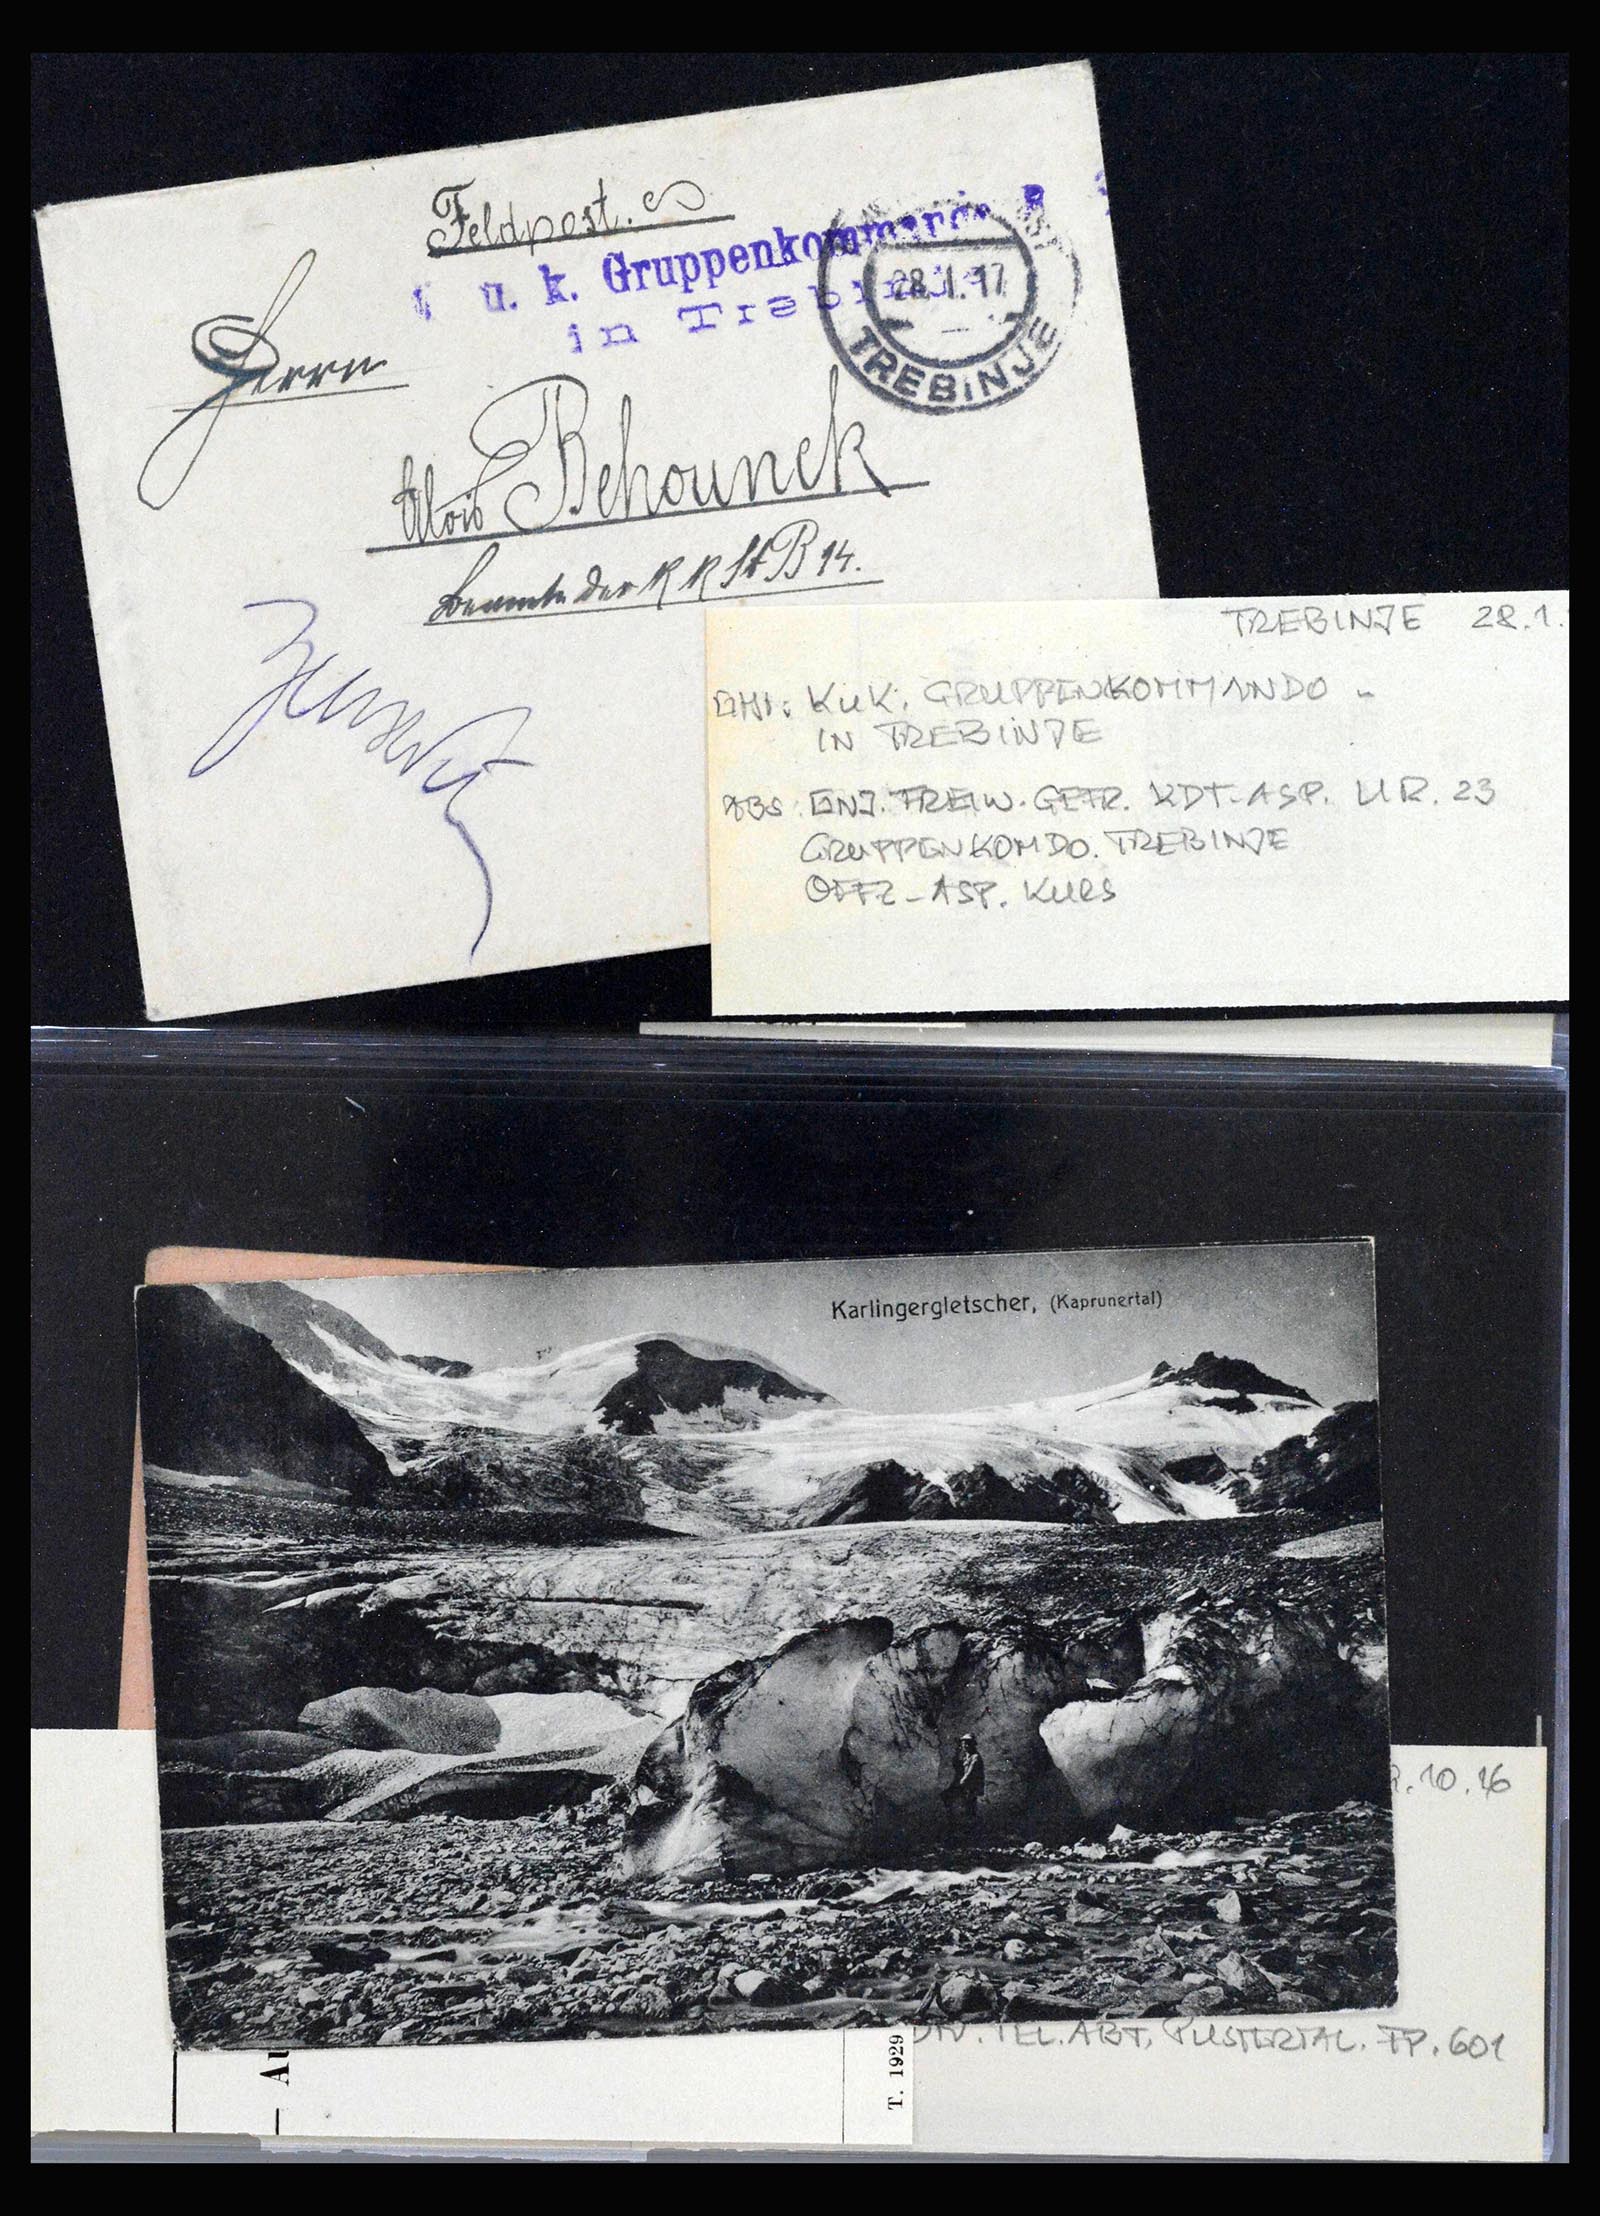 Feldpost.
u. k. Gruppenkommando
in Trebinje
28.1.17
TREBINJE
Herrn
Alois Behounek
Beamte der K K St B 14.
TREBINJE 28.1.
KuK. GRUPPENKOMMANDO -
IN TREBINJE
ABS: EINJ. FREIW. GEFR. KDT-ASP. I.R. 23
GRUPPENKOMDO. TREBINJE
OFFZ-ASP. KURS
Karlingergletscher, (Kaprunertal)
.10.16
DIV. TEL. ABT, PUSTERTAL. FP. 601
T. 1929